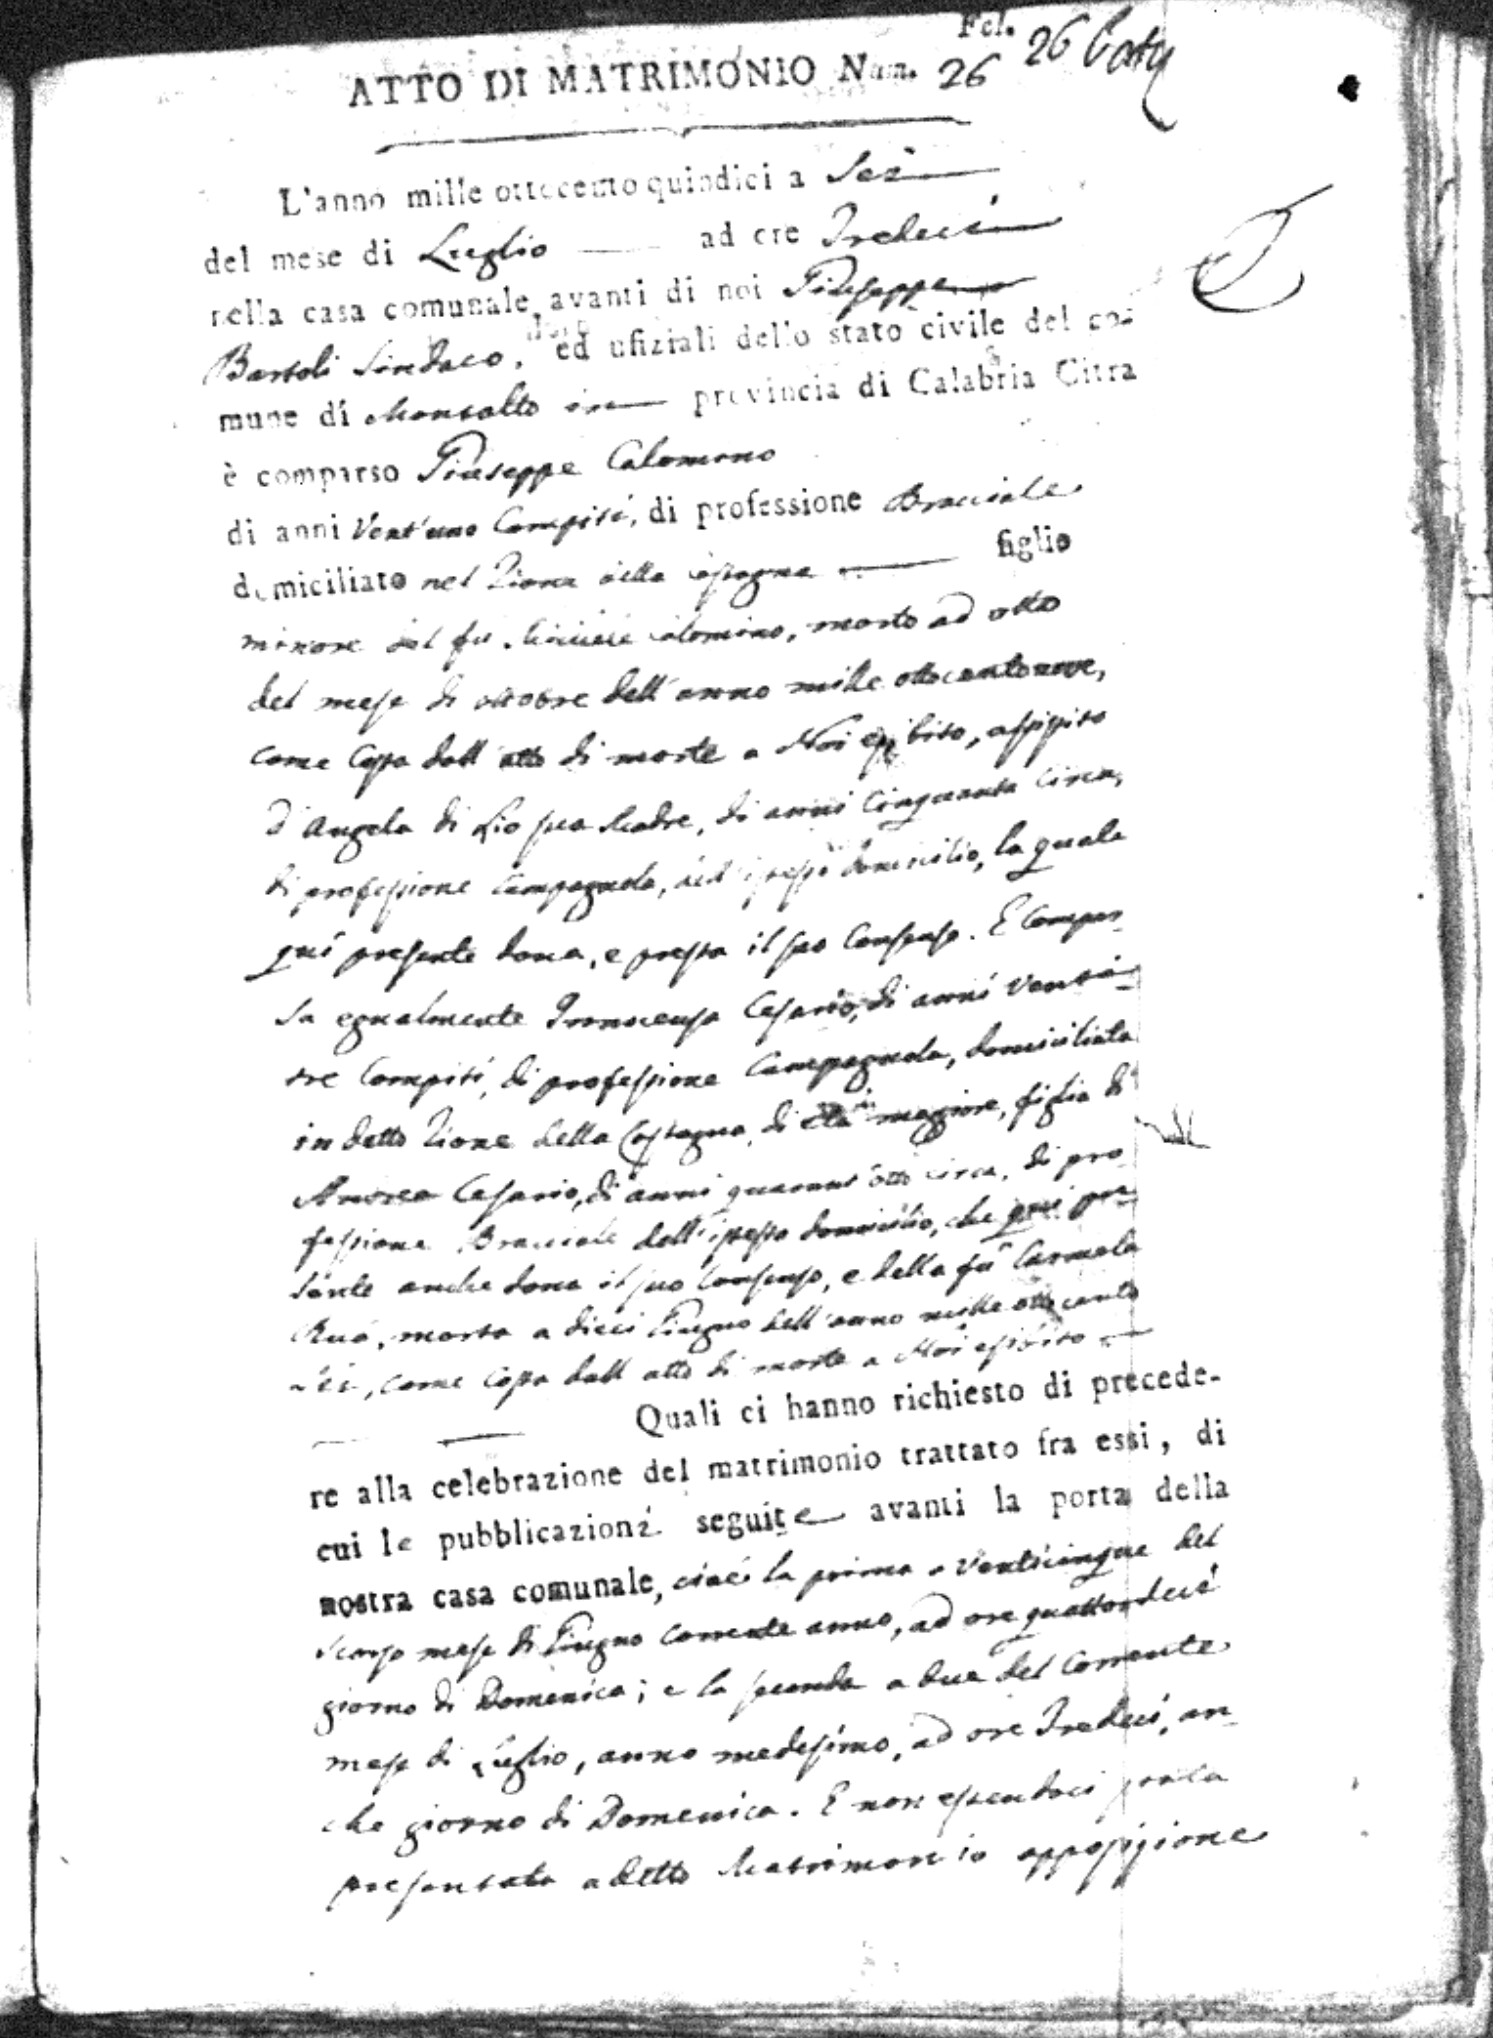 Fol. 26
ATTO DI MATRIMONIO Num. 26
L'anno mille ottocento quindici a Sei
del mese di Luglio ad ore Tredeci
nella casa comunale avanti di noi Giuseppe
Bartoli Sindaco, ed ufiziali dello stato civile del co-
mune di Montalto in provincia di Calabria Citra
è comparso Giuseppe Calomino
di anni Vent'uno Compiti, di professione Bracciale
domiciliato nel Rione della figlio
minore del fu Calomino, morto ad otto
del mese di ottobre dell'anno mille ottocentonove,
come Costa dall'atto di morte a Noi esibito, assistito
d'Angela di Lio sua Madre, di anni Cinquanta circa,
di professione Campagnola, dell'istesso domicilio, la quale
qui presente dona, e presta il suo Consenso. E Compar-
sa egualmente Innocenza Cesario, di anni Venti-
tre Compiti, di professione Campagnola, domiciliata
in detto Rione della Castagna, di età maggiore, figlia di
Andrea Cesario, di anni quarant'otto circa, di pro-
fessione Bracciale dell'istesso domicilio, che qui pre-
sente anche dona il suo Consenso, e della fu Carmela
Ruà, morta a dieci Giugno dell'anno mille ottocento
sei, come Costa dall'atto di morte a Noi esibito
Quali ci hanno richiesto di precede-
re alla celebrazione del matrimonio trattato fra essi, di
cui le pubblicazioni seguite avanti la porta della
nostra casa comunale, cioè la prima a Venticinque del
scorso mese di Giugno corrente anno, ad ore quattordeci
giorno di Domenica; e la seconda a due del Corrente
mese di Luglio, anno medesimo, ad ore Tredeci, an-
che giorno di Domenica. E non essendoci
presentata a detto Matrimonio opposizione